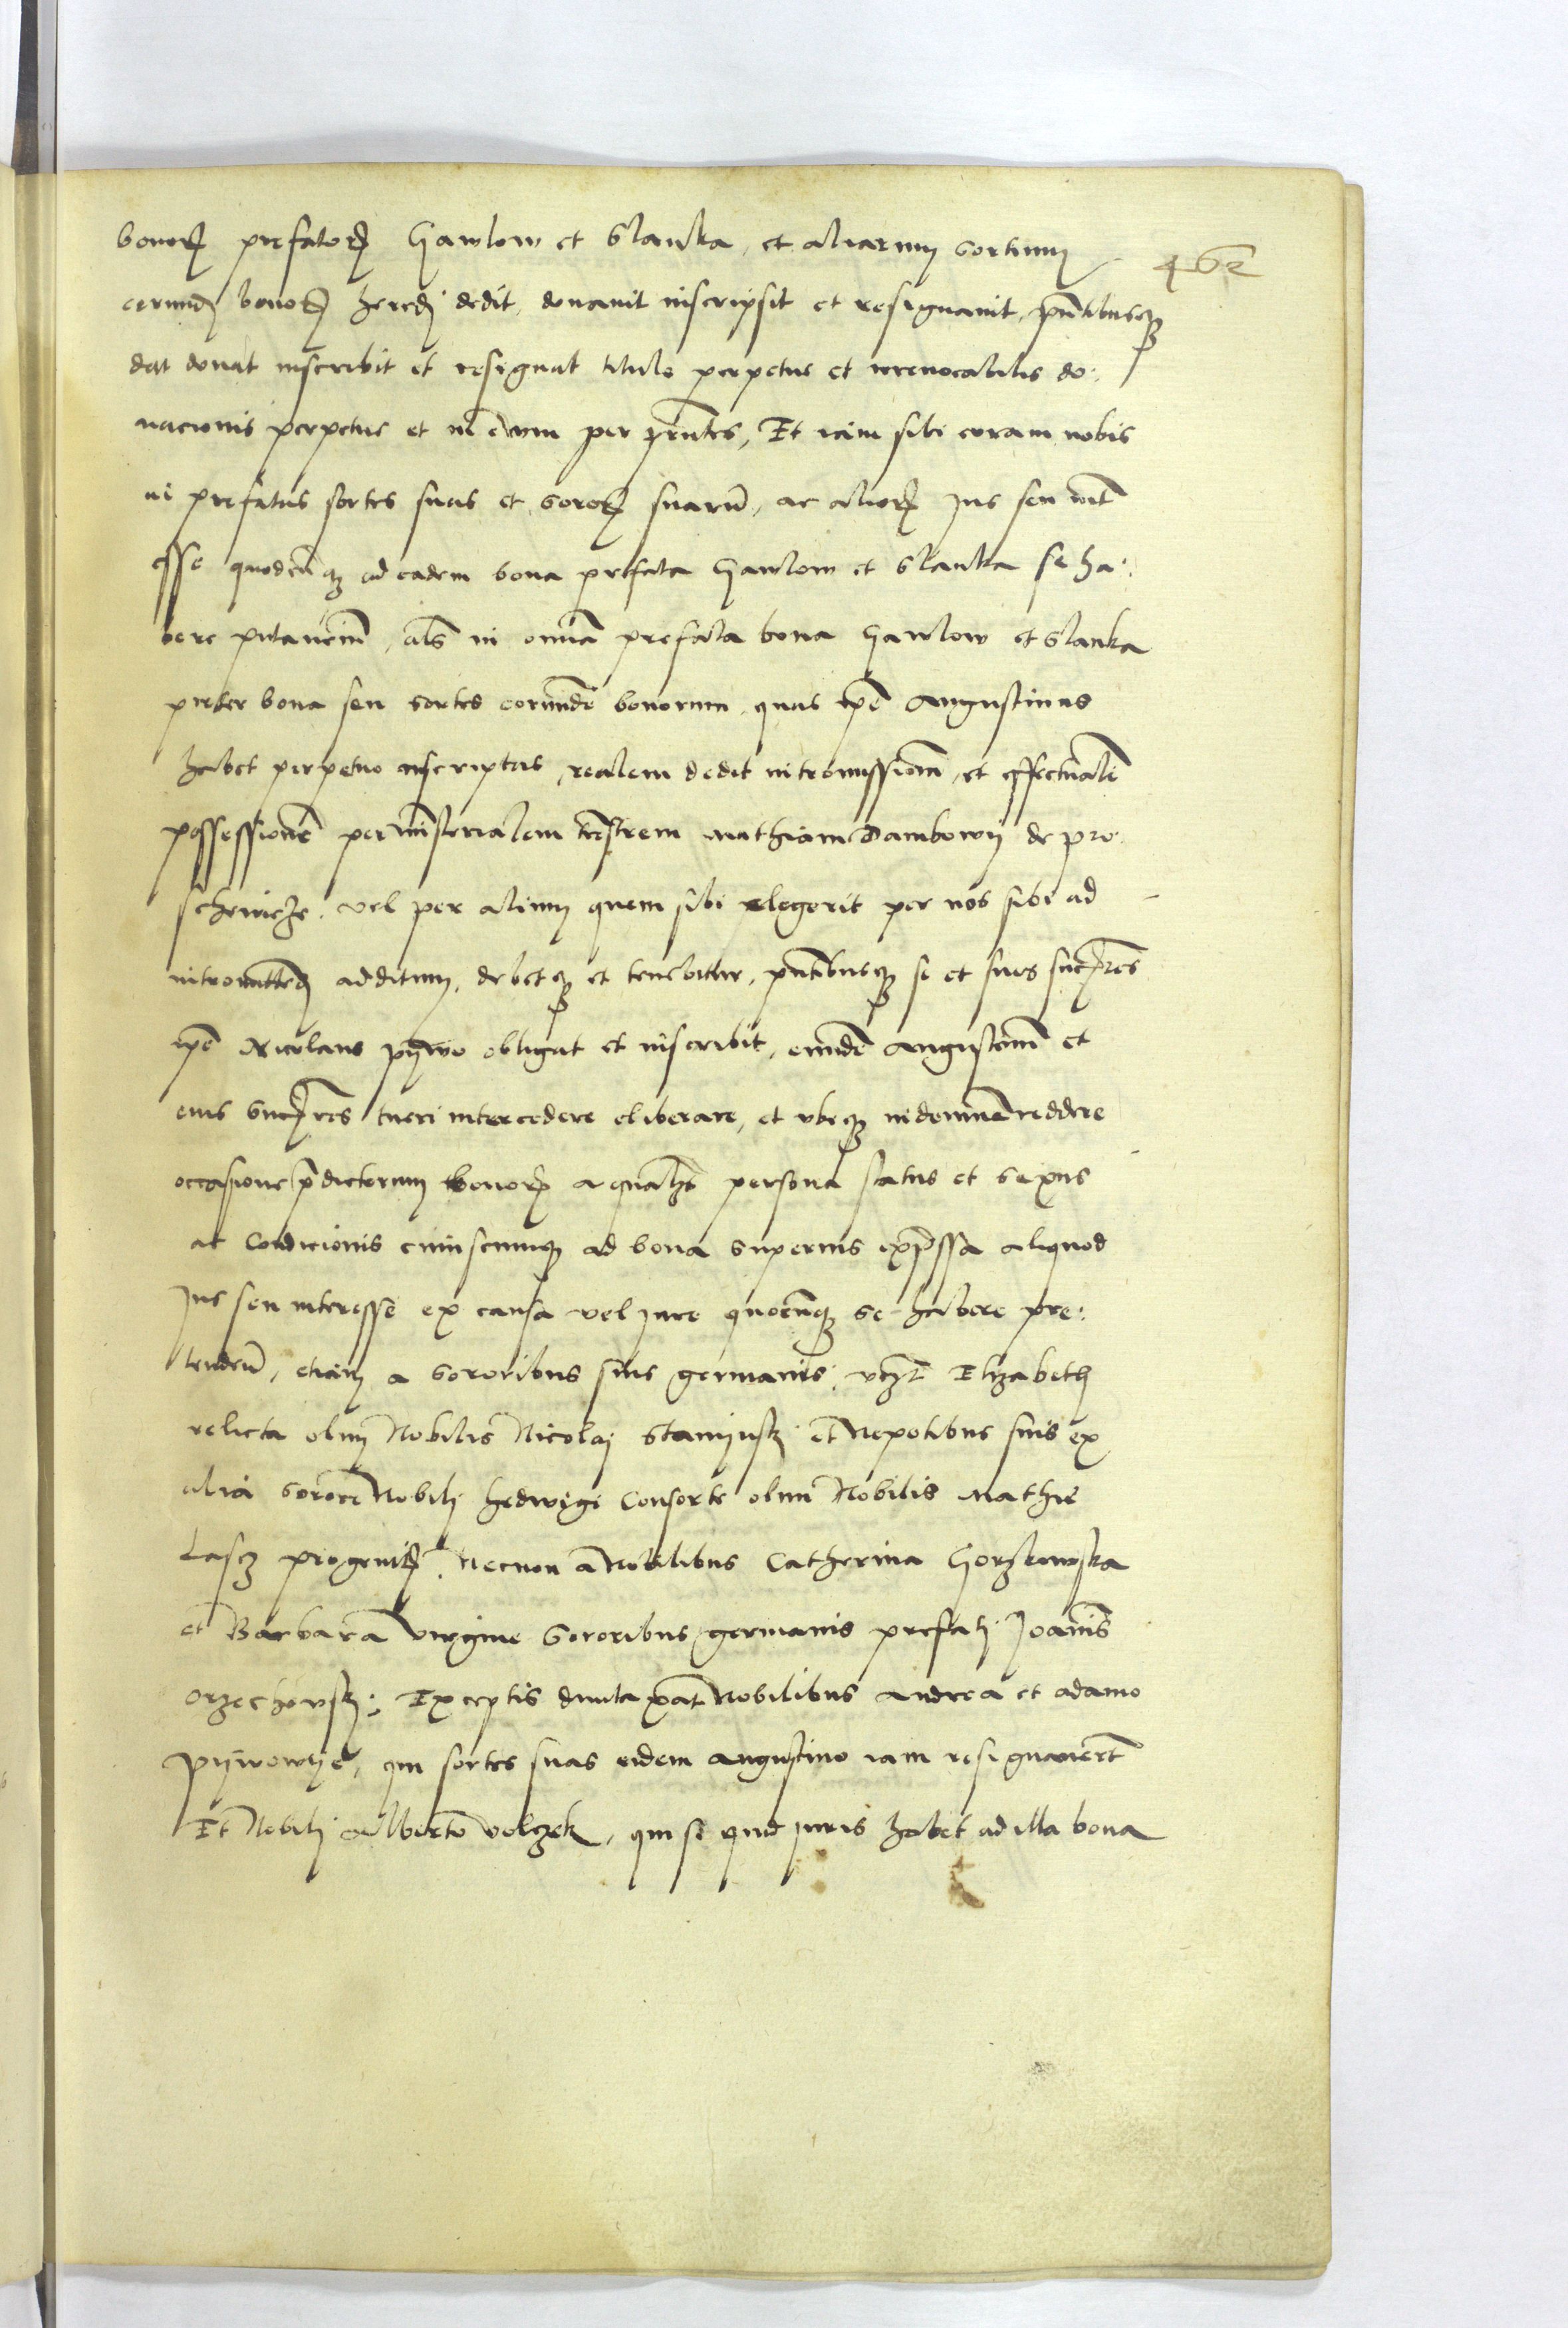 bonorʒ prefatorʒ Gawlow et Slanka, et aliarum sortium
462
eorundʒ bonorʒ heredʒ dedit, donavit inscripsit et resignavit, pn̄tibusqʒ
dat donat inscribit et resignat titulo perpetue et irrevocabilis do:
nacionis perpetue et in evum per pn̄tes, Et iam sibi coram nobis
in prefatas sortes suas et sororʒ suarū, ac aliorʒ Jus seu int
esse quodcūqʒ ad eadem bona prefata Gawlow et Slanka se ha:
bere putancīm, als in omīa prefata bona Gawlow et Slanka
preter bona seu sortes eorundē bonorum, quas ipē Augustinus
habet perpetuo inscriptas, realem dedit intromissionē, et effectualē
possessionē per ministerialem trēstrem Mathiam Dambowy de pro:
schowicze, vel per alium quem sibi elegerit per nos sibi ad
intromittendʒ additum, debetqʒ et tenebitur, pn̄tibusqʒ se et suos succ̄res
ipē Nicolaus pywo obligat et inscribit, eundē Augustinū et
eius succ̄res tueri intercedere eliberare, et ubiqʒ indemnē reddere
occasione p̄dictorum bonorʒ a qualibet persona status et sexus
ac Condicionis cuiuscumqʒ ad bona superius exp̄ssa aliquod
Jus seu interesse ex causa vel jure quocūqʒ se habere pre:
tendeñ, etiam a sororibus suis germanis, vczt Elizabeth
relicta olim Nobilis Nicolaj Stanyysky et Nepotibus suis ex
alia sorore Nobili Hedwigi Consorte olim Nobilis Mathie
Lascz progenitʒ, Necnon a Nobilibus Catherina Gorzkowska
et Barbara virgine Sororibus germanis prefati Joannis
Orzechowsky; Exceptis duntaxat Nobilibus Andrea et Adamo
pywowye, qui sortes suas eidem Augustino iam resignaverūt
Et Nobili Alberto volczek, qui si quid juris habet ad illa bona